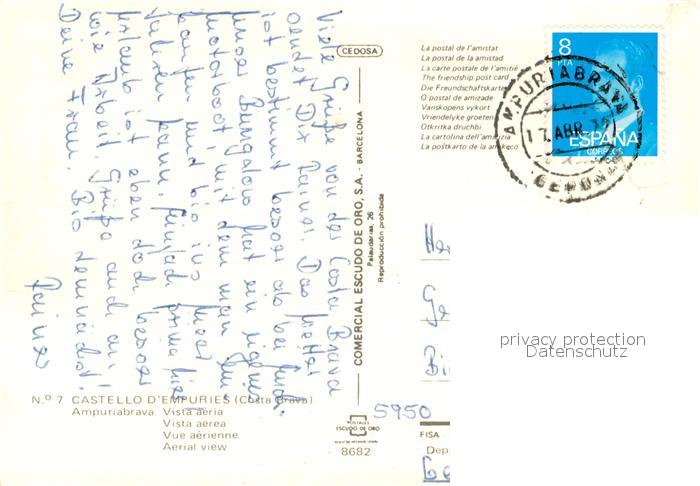 Viele Grüße von der Costa Brava
sendet Dir Rainer. Das Wetter
ist bestimmt besser als bei Euch.
Unser Bungalow hat ein eigenes
Motorboot, mit dem man zum
Einkaufen und bis ins Meer
fahren kann. Einfach prima hier.
Urlaub ist eben doch besser
wie Arbeit. Grüße auch an
Deine Frau. Bis demnächst.
Rainer
CEDOSA
COMERCIAL ESCUDO DE ORO, S.A. - BARCELONA
Palaudarias, 26
Reproducción prohibida
La postal de l'amistat
La postal de la amistad
La carte postale de l'amitié
The friendship post card
Die Freundschaftskarte
O postal de amizade
Vanskopens vykort
Vriendelyke groeten
Otkritka druchbi
La cartolina dell'amicizia
La postkarto de la amikeco
8
PTA
ESPAÑA
CORREOS
AMPURIABRAVA
17 ABR
GERONA
He
Ge
Bi
5950
privacy protection
Datenschutz
N.º 7 CASTELLO D'EMPURIES (Costa Brava)
Ampuriabrava. Vista aèria
Vista aérea
Vue aérienne
Aerial view
POSTALES
ESCUDO DE ORO
8682
FISA
Dep